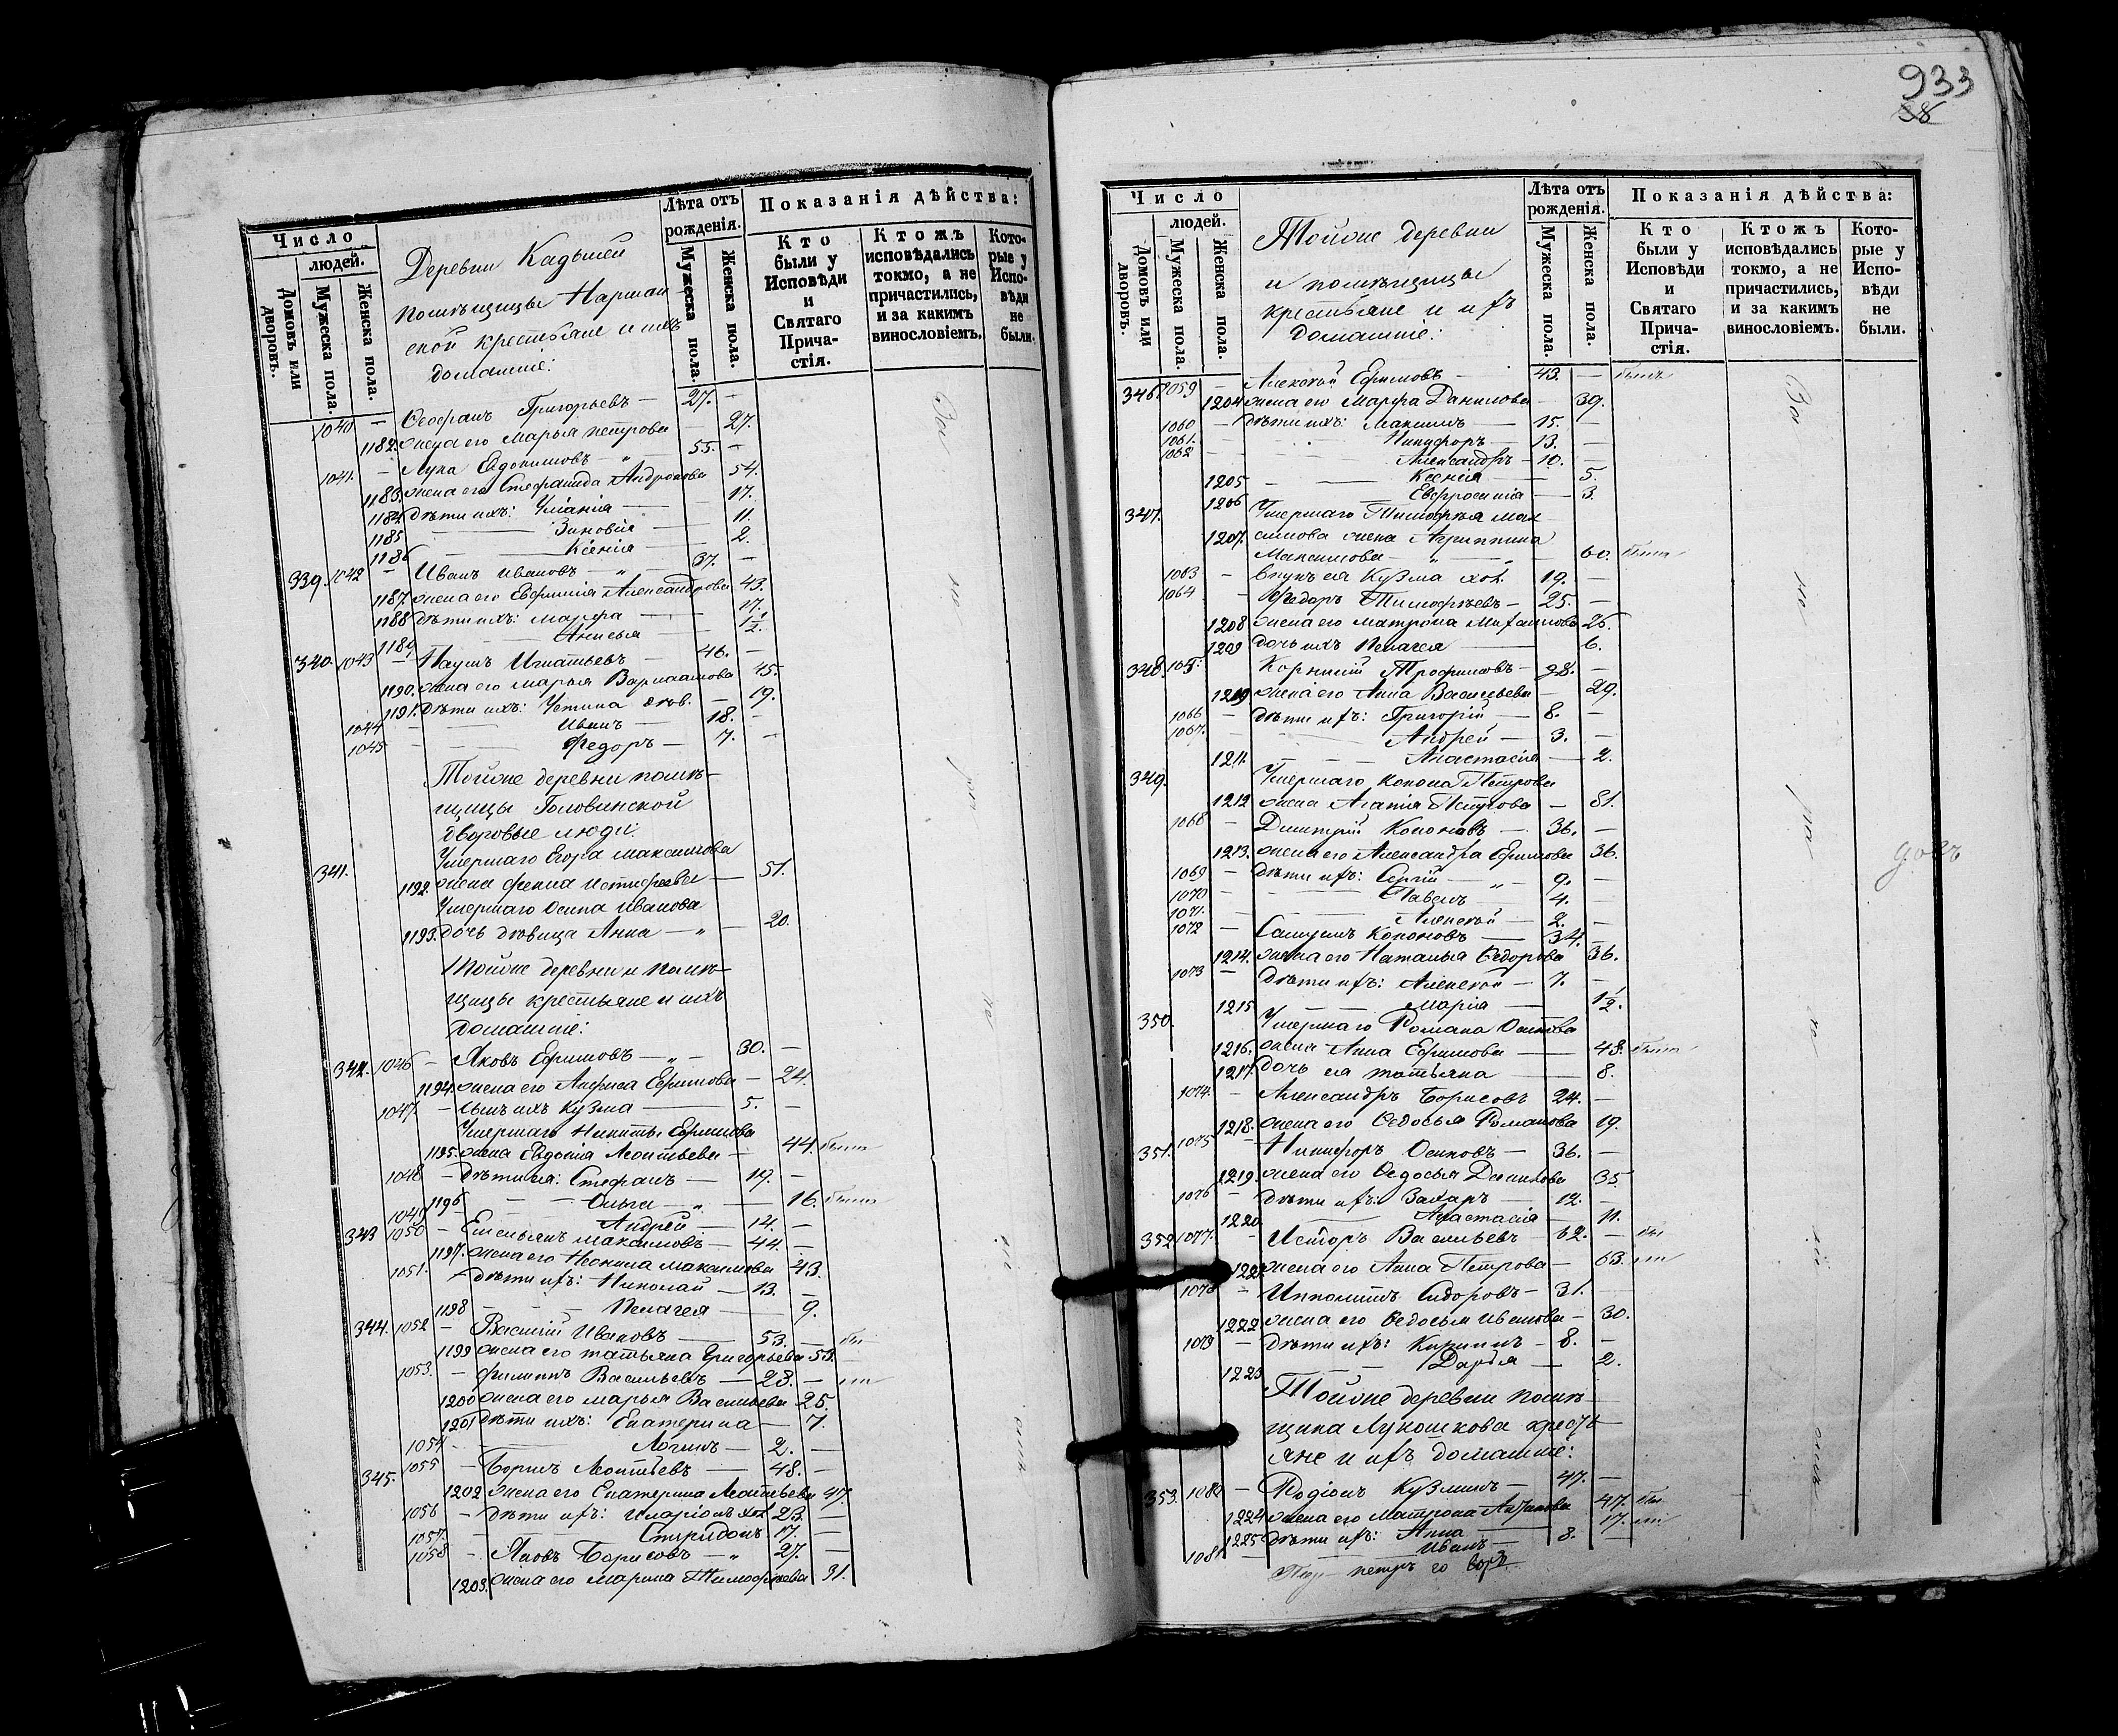 Число
людей.
Домовъ или дворовъ.
Мужеска пола.
Женска пола.
Деревни Кадышей
помѣщицы Нарман
ской крестьяне и ихъ
домашніе:
Лѣта отъ рожденія.
Мужеска пола.
Женска пола.
Показанія дѣйства:
Кто были у Исповѣди и Святаго Причастія.
Ктожъ исповѣдались токмо, а не причастились, и за какимъ винословіемъ.
Которые у Исповѣди не были.
1040 — Ѳеофанъ Григорьевъ — 27. —
1182. жена его Марья Петрова — 27.
1041. — Лука Евдокимовъ — 55. —
1183. жена его Стефанида Андронова 54.
1184. дѣти ихъ: Уліанія — 17.
1185 Зиновія — 11.
1186 Ксенія — 2.
339. 1042 — Иванъ Ивановъ — 37. —
1187. жена его Евфимія Александрова 43.
1188 дѣти ихъ: Марфа — 17.
1189 Анисья — 1½.
340. 1043 — Наумъ Игнатьевъ — 46. —
1190. жена его Марья Варлаамова 45.
1191. дѣти ихъ: Устина дѣв. — 19.
1044 — Иванъ — 18. —
1045 — Федоръ — 7. —
Тойже деревни помѣ-
щицы Головинской
дворовые люди:
341. Умершаго Егора Максимова
1192. жена Фекла — 51.
Умершаго Осипа Иванова
1193. дочь дѣвица Анна — 20.
Тойже деревни и помѣ-
щицы крестьяне и ихъ
домашніе:
342. 1046 — Яковъ Ефимовъ — 30. —
1194. жена его Анфиса Ефимова — 24.
1047 — сынъ ихъ Кузма — 5. —
Умершаго Никиты Ефимова
1195. жена Евдокія Леонтьева — 44.
1048 — дѣти ея: Стефанъ — 19. —
1196 Ольга — 16.
1049 — Андрей — 14. —
343 1050 — Емельянъ Максимовъ — 44. —
1197. жена его Неонила Максимова 43.
1051. — дѣти ихъ: Николай — 13. —
1198 Пелагея — 9.
344. 1052 — Василій Ивановъ — 53. —
1199 жена его Татьяна Григорьева 53.
1053. — Филиппъ Васильевъ — 28. —
1200 жена его Марья Васильева 25.
1201 дѣти ихъ: Екатерина — 7.
1054 — Логинъ — 2. —
345. 1055 — Борисъ Леонтьевъ — 48. —
1202 жена его Екатерина Леонтьева 47.
1056 — дѣти ихъ: Иларіонъ хол. 23. —
1057. — Спиридонъ 17. —
1058 — Яковъ Борисовъ — 27. —
1203. жена его Марина Тимофеева 31.
933
58
Число
людей.
Домовъ или дворовъ.
Мужеска пола.
Женска пола.
Тойже деревни
и помѣщицы
крестьяне и ихъ
домашніе:
Лѣта отъ рожденія.
Мужеска пола.
Женска пола.
Показанія дѣйства:
Кто были у Исповѣди и Святаго Причастія.
Ктожъ исповѣдались токмо, а не причастились, и за какимъ винословіемъ.
Которые у Исповѣди не были.
346 1059 — Алексѣй Ефимовъ — 43. — былъ
1204 жена его Марфа Данилова — 39.
1060 — дѣти ихъ: Максимъ — 15. —
1061. Никифоръ — 13. —
1062 Александръ — 10. —
1205 Ксенія — 5.
1206 Евфросинія — 3.
347. Умершаго Тимофѣя Мак
1207. симова жена Агриппина
Максимова — 60. была
1063 — внукъ ея Кузма хол. 19. —
1064 — Ѳедоръ Тимофѣевъ — 25. —
1208 жена его Матрона Михайлова 26.
1209 дочь ихъ Пелагея — 6.
348. 1065. Корнилій Трофимовъ — 28. —
1210 жена его Анна Васильева — 29.
1066 — дѣти ихъ: Григорій — 8. —
1067. Андрей — 3. —
1211. Анастасія — 2.
349. Умершаго Конона Петрова
1212 жена Агапія Петрова — 81.
1068 — Дмитрій Кононовъ — 36. —
1213. жена его Александра Ефимова 36.
1069 — дѣти ихъ: Сергій — 9. —
1070 — Павелъ — 4. —
1071. — Алексѣй — 2. —
1072 — Самуилъ Кононовъ — 34. —
1214. жена его Наталья Ѳедорова 36.
1073 — дѣти ихъ: Алексѣй — 7. —
1215 Марія — 1½.
350. Умершаго Романа Осипова
1216. жена Анна Ефимова — 48. была
1217. дочь ея Татьяна — 8.
1074. — Александръ Борисовъ 24. —
1218. жена его Ѳедосья Романова 19.
351. 1075 — Никифоръ Осиповъ — 36. —
1219. жена его Ѳедосья Данилова 35
1076 — дѣти ихъ: Захаръ — 12. —
1220 Анастасія — 11.
352 1077. — Исидоръ Васильевъ — 62. —
1221 жена его Анна Петрова — 63.
1078 — Ипполитъ Сидоровъ — 31.
1222 жена его Ѳедосья Иванова — 30.
1079 — дѣти ихъ: Кириллъ — 8. —
1223 Дарья — 2.
Тойже деревни помѣ
щика Лукошкова кресть
яне и ихъ домашніе:
353. 1080 — Родіонъ Кузминъ — 47. —
1224 жена его Матрона — 47.
1225 дѣти ихъ: Анна — 17.
1081 — Иванъ — 8. —